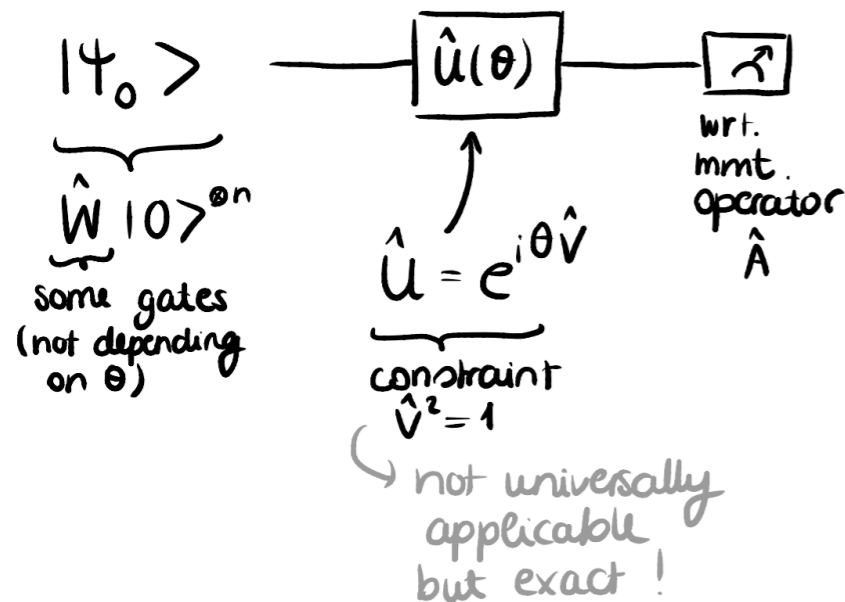 |Ψ₀> Û(θ)
wrt.
mmt.
operator
Â
Ŵ |0>^⊗n
some gates
(not depending
on θ)
Û = e^iθV̂
constraint
V̂² = 1
not universally
applicable
but exact !